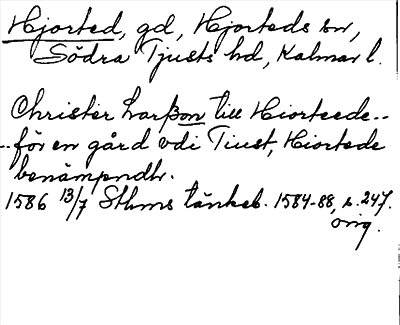 Hjorted, gd, Hjorteds sn,
Södra Tjusts hd, Kalmar l.
Christer Larßon till Hiorteede--
--för en gård vdi Tiust, Hiortede
benämpndh.
1586 13/7 Sthms tänkeb. 1584-88, s. 247.
orig.